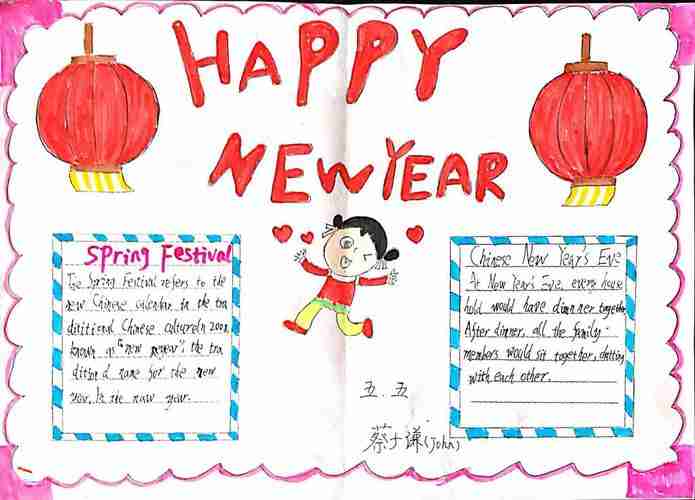 HAPPY
NEW YEAR
Spring Festival
The Spring Festival refers to the
new Chinese calendar in the tra
ditional Chinese
known as "new the tra
ditional name for the new
year. Is the new year.
Chinese New Year's Eve
At New Year's Eve, every house
hold would have dinnner together.
After dinner, all the family
members would sit together, chatting
with each other.
五.五
蔡士谦(John)